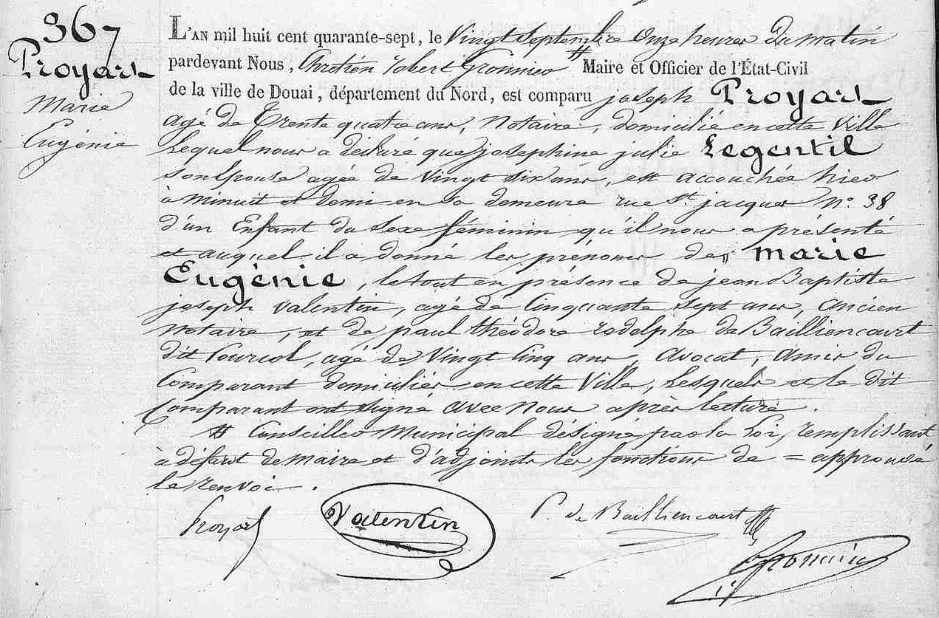 367
Proyart
Marie
Eugénie
L'AN mil huit cent quarante-sept, le Vingt Septembre Onze heures du matin
pardevant Nous, Chrétien Robert # Maire et Officier de l'État-Civil
de la ville de Douai, département du Nord, est comparu joseph Proyart
agé de Trente quatre ans, Notaire, domicilié en cette Ville
Lequel nous a declaré que josephine julie Legentil
son Epouse agée de Vingt six ans, est accouchée hier
à Minuit et demi en sa demeure rue St jacques N° 38
d'un Enfant du Sexe féminin qu'il nous a présenté
et auquel il a donné les prénoms de marie
Eugénie, le tout en présence de jean Baptiste
joseph Valentin, agé de Cinquante sept ans, ancien
Notaire, et de paul théodore rodolphe de Bailliencourt
dit Courcol, agé de Vingt Cinq ans, Avocat, Amis du
Comparant domiciliés en cette Ville, Lesquels et le dit
Comparant ont signé avec Nous après lecture.
# Conseiller Municipal désigné par la Loi, remplissant
à défaut de Maire et d'adjoints les fonctions de = approuvé
le renvoi.
Proyart
Valentin
P. de Bailliencourt